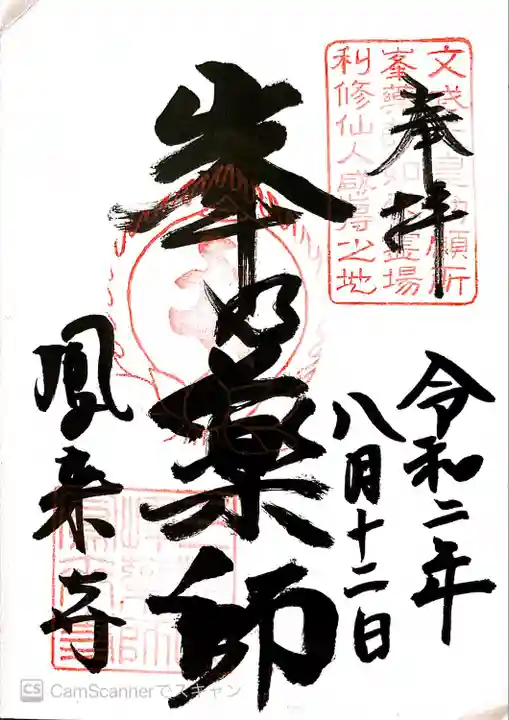 奉拝
文武天皇勅願所
峯薬師如来霊場
利修仙人感得之地
令和二年
八月十二日
峯の薬師
鳳来寺
CS CamScannerでスキャン